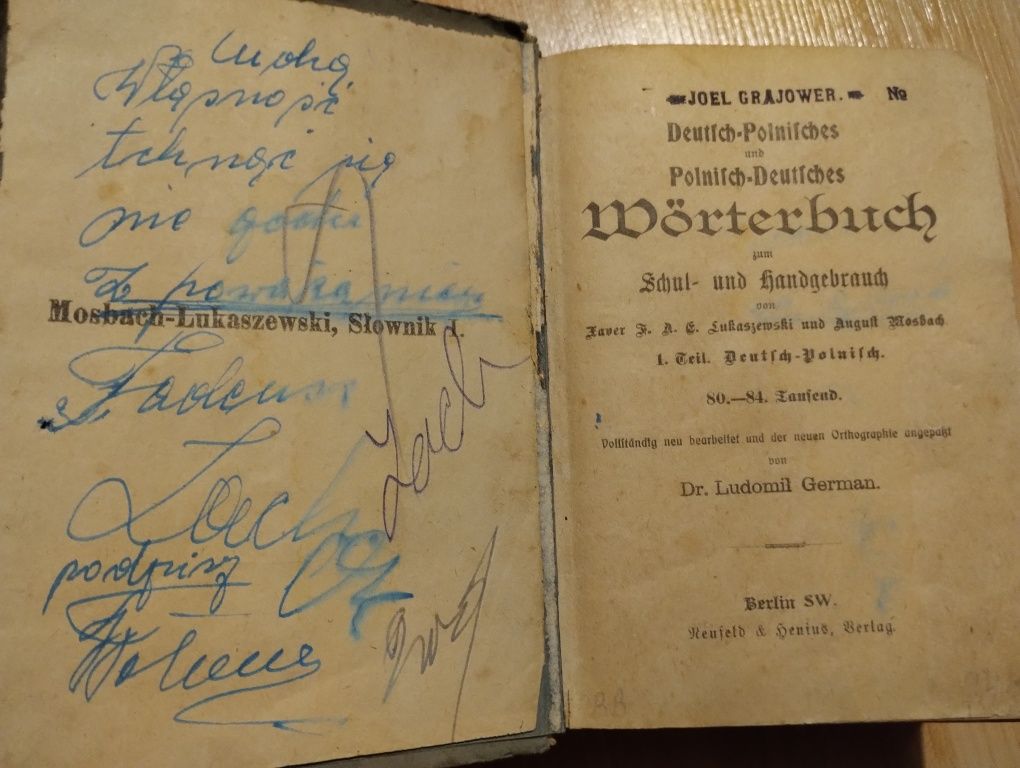 Cudzą
Własność
tchnąć się
nie godzi
Z poważaniem
Mosbach-Łukaszewski, Słownik I.
Tadeusz
Lach
Lach
podpisz
JOEL GRAJOWER. No
Deutſch-Polniſches
und
Polniſch-Deutſches
Wörterbuch
zum
Schul- und Handgebrauch
von
Xaver F. A. E. Łukaszewski und Auguſt Mosbach
1. Teil. Deutſch-Polniſch.
80.—84. Tauſend.
Vollſtändig neu bearbeitet und der neuen Orthographie angepaßt
von
Dr. Ludomil German.
Berlin SW.
Neufeld & Henius, Verlag.